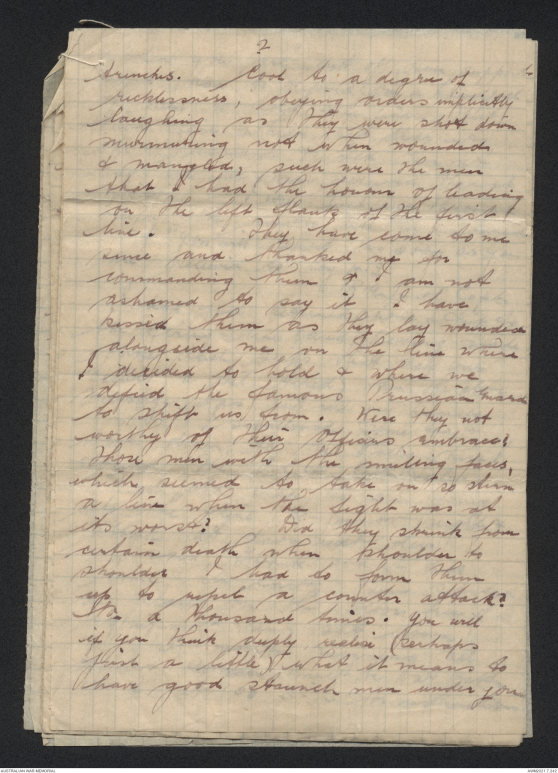 2
trenches. Cool to a degree of
recklessness, obeying orders implicitly
laughing as they were shot down
murmuring not when wounded
& mangled, such were the men
that I had the honour of leading
on the left flank of the first
line. They have come to me
since and thanked me for
commanding them & I am not
ashamed to say it I have
kissed them as they lay wounded
alongside me on the line where
I decided to hold & where we
defied the famous Prussian Guard
to shift us from. Were they not
worthy of their Officers embrace?
Those men with the smiling faces,
which seemed to take on so stern
a line when the fight was at
its worst? Did they shrink from
certain death when shoulder to
shoulder I had to form them
up to repel a counter attack?
No a thousand times. You will
if you think deeply realise (perhaps
just a little) what it means to
have good staunch men under you
AUSTRALIAN WAR MEMORIAL